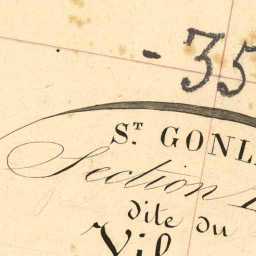 - 35
S.T GONL
Section
dite du
Vil